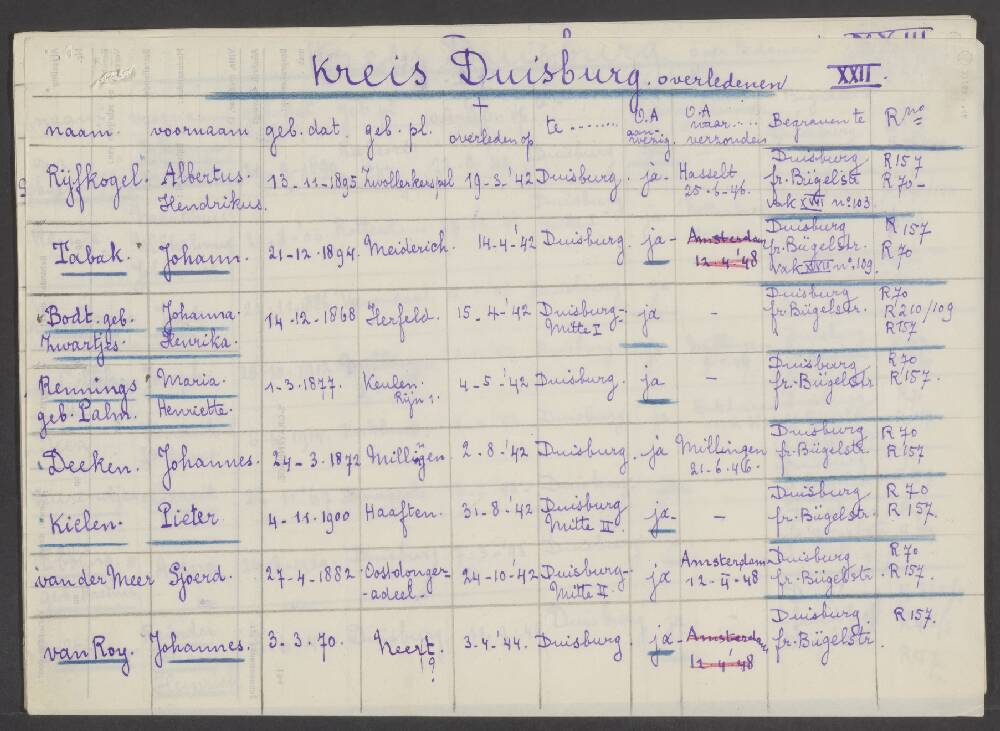 Kreis Duisburg. overledenen XXII.
naam. voornaam geb. dat. geb. pl. † overleden op te ........ O.A aan-wezig. O.A waar.... verzonden Begraven te R no
Rijfkogel. Albertus. Hendrikus. 13-11-1895 Zwollerkerspel 19-3-'42 Duisburg. ja- Hasselt 25-6-46. Duisburg fr. Bügelstr vak XVII no 103. R157 R70-
Tabak. Johann. 21-12-1894. Meiderich. 14-4-'42 Duisburg. ja- Amsterdam 12-4-'48 Duisburg fr. Bügelstr. vak XVII no 109. R157 R70
Bodt. geb. Zwartjes. Johanna. Henrika. 14-12-1868 Herfeld. 15-4-'42 Duisburg- Mitte I ja - Duisburg fr. Bügelstr. R70 R210/109 R157
Rennings geb. Palm. Maria. Henriette. 1-3-1877. Keulen. Rijn 4-5-'42 Duisburg. ja - Duisburg fr. Bügelstr R70 R157.
Deeken. Johannes. 24-3-1872 Millingen. 2-8-'42 Duisburg. ja Millingen 21-6-46. Duisburg fr. Bügelstr. R70 R157
Kielen. Pieter. 4-11-1900 Haaften. 31-8-'42 Duisburg Mitte II ja- - Duisburg fr. Bügelstr. R70 R157.
van der Meer Sjoerd. 27-4-1882 Oostdonger- -adeel- 24-10-'42 Duisburg- Mitte II ja Amsterdam 12-II-48 Duisburg fr. Bügelstr. R70 R157.
van Roy. Johannes. 3-3-70. Neert !? 3-4-'44. Duisburg. ja- Amsterdam 12-4-'48 Duisburg. fr. Bügelstr. R157.